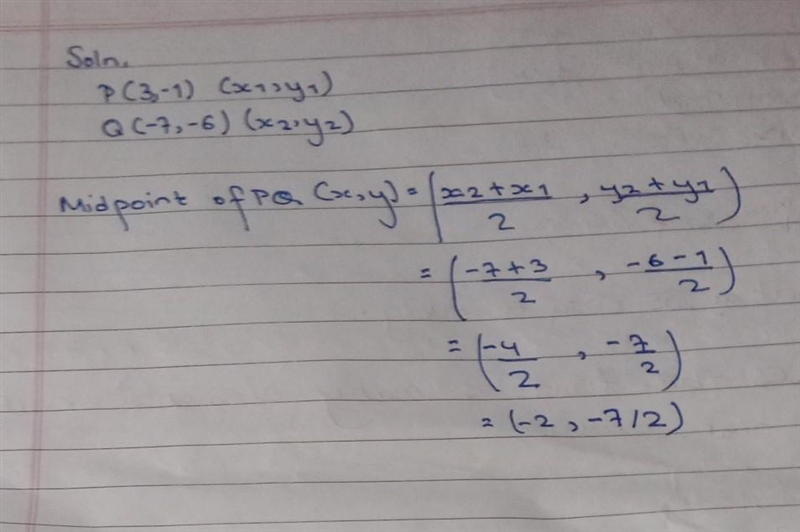 Soln.
P(3,-1) (x1,y1)
Q(-7,-6) (x2,y2)
Midpoint of PQ (x,y) = (x2+x1/2 , y2+y1/2)
= (-7+3/2 , -6-1/2)
= (-4/2 , -7/2)
= (-2, -7/2)